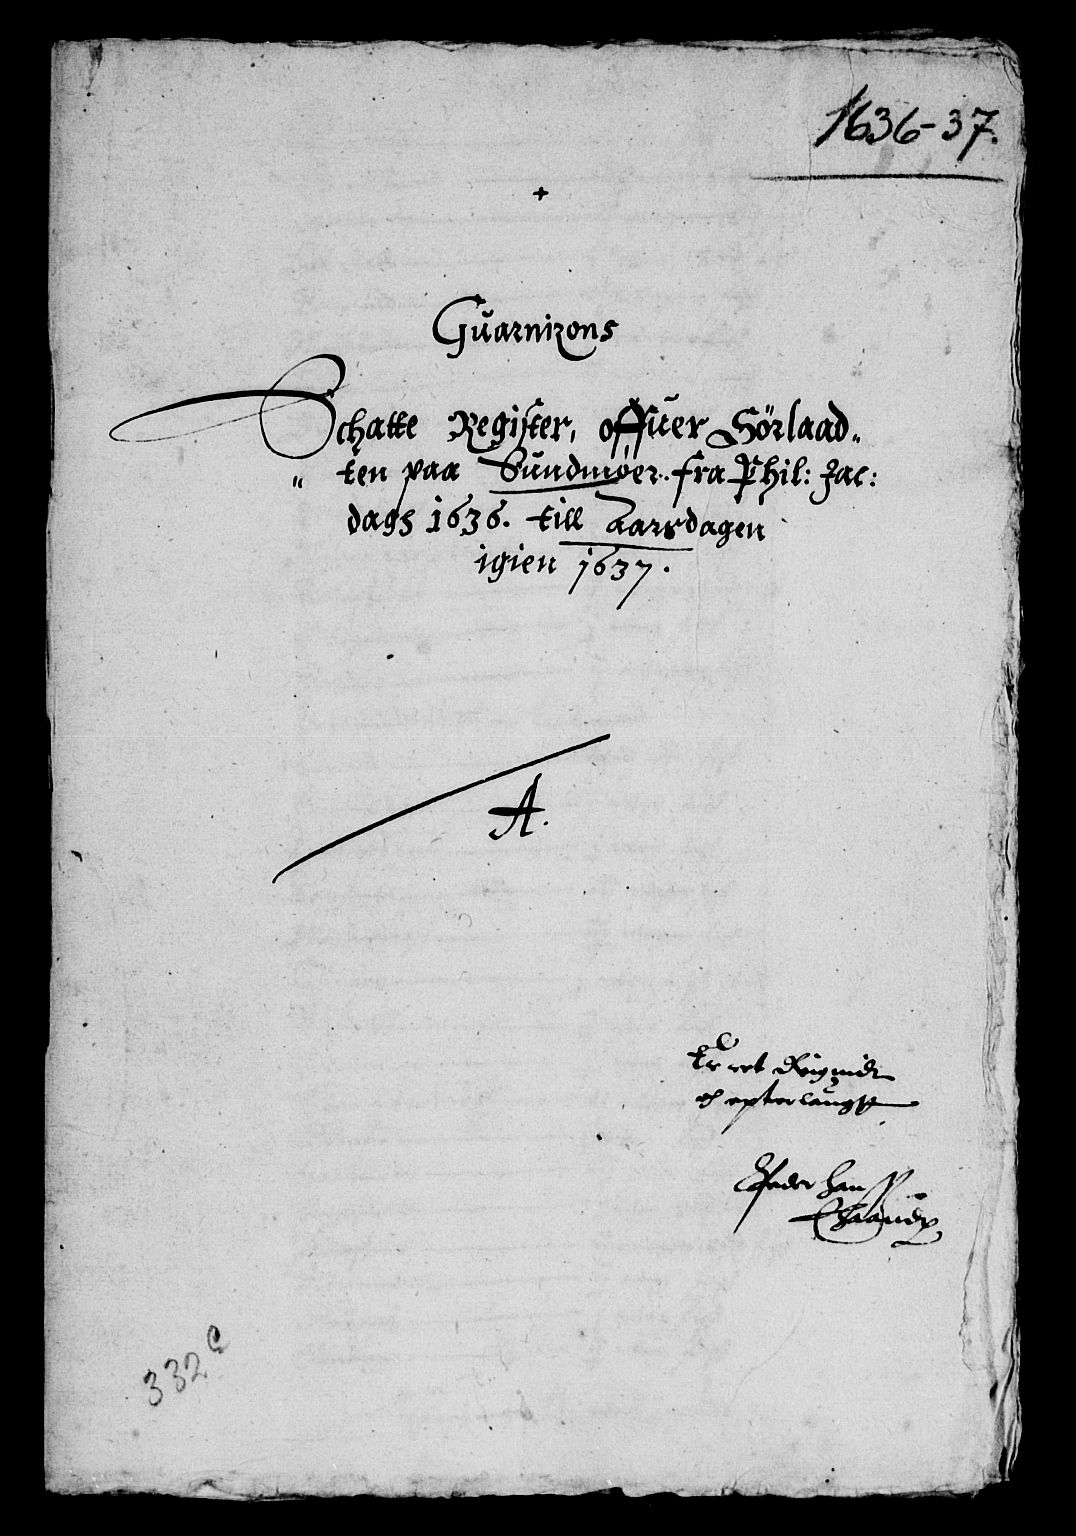 1636-37.
+
Guarnizons
Schatte Register, offuer Sörlaad„
„ ten paa Sundmøer. fra Phil: Jac:
dags 1636. till Aarsdagen
igien 1637.
A.
Er ret
Peder
332